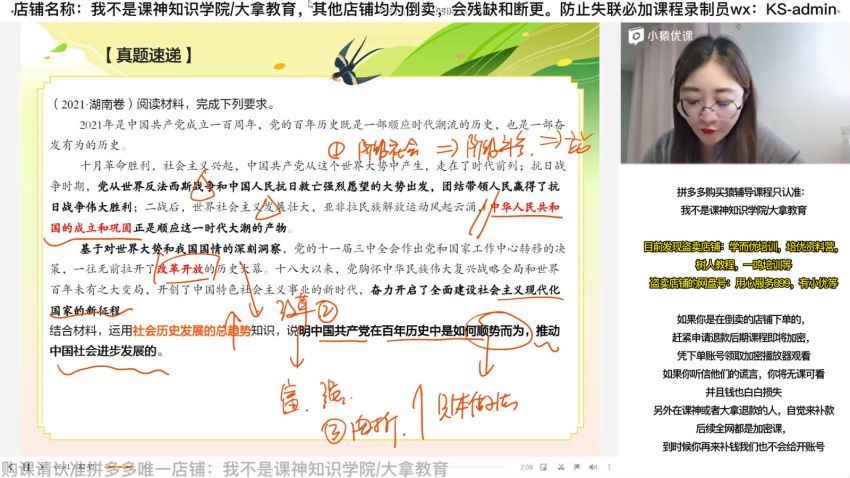 店铺名称：我不是课神知识学院/大拿教育，其他店铺均为倒卖，会残缺和断更。防止失联必加课程录制员wx：KS-admin
【真题速递】
小猿优课
（2021·湖南卷）阅读材料，完成下列要求。
2021年是中国共产党成立一百周年，党的百年历史既是一部顺应时代潮流的历史，也是一部奋
发有为的历史。
① 阶级社会 ⇒ 阶级斗争 ⇒
十月革命胜利，社会主义兴起，中国共产党从这个世界大势中产生，走在了时代前列；抗日战
争时期，党从世界反法西斯战争和中国人民抗日救亡强烈愿望的大势出发，团结带领人民赢得了抗
日战争伟大胜利；二战后，世界社会主义发展壮大，亚非拉民族解放运动风起云涌，中华人民共和
国的成立和巩固正是顺应这一时代大潮的产物。
基于对世界大势和我国国情的深刻洞察，党的十一届三中全会作出党和国家工作中心转移的决
策，一往无前拉开了改革开放的历史大幕。十八大以来，党胸怀中华民族伟大复兴战略全局和世界
百年未有之大变局，开创了中国特色社会主义事业的新时代，奋力开启了全面建设社会主义现代化
国家的新征程
改革②
结合材料，运用社会历史发展的总趋势知识，说明中国共产党在百年历史中是如何顺势而为，推动
中国社会进步发展的。
富、强.
具体做法
③曲折.
拼多多购买猿辅导课程只认准：
我不是课神知识学院/大拿教育
目前发现盗卖店铺：学而优培训，培优资料馆，
树人教程，一鸣培训等
盗卖店铺的网盘号：用心服务899，有小优等
如果你是在倒卖的店铺下单的，
赶紧申请退款后期课程即将加密，
凭下单账号领取加密播放器观看
如果你听信他们的谎言，你将无课可看
并且钱也白白损失
另外在课神或者大拿退款的人，自觉来补款
后续全网都是加密课，
到时候你再来补钱我们也不会给开账号
2.0X
购课请认准拼多多唯一店铺：我不是课神知识学院/大拿教育